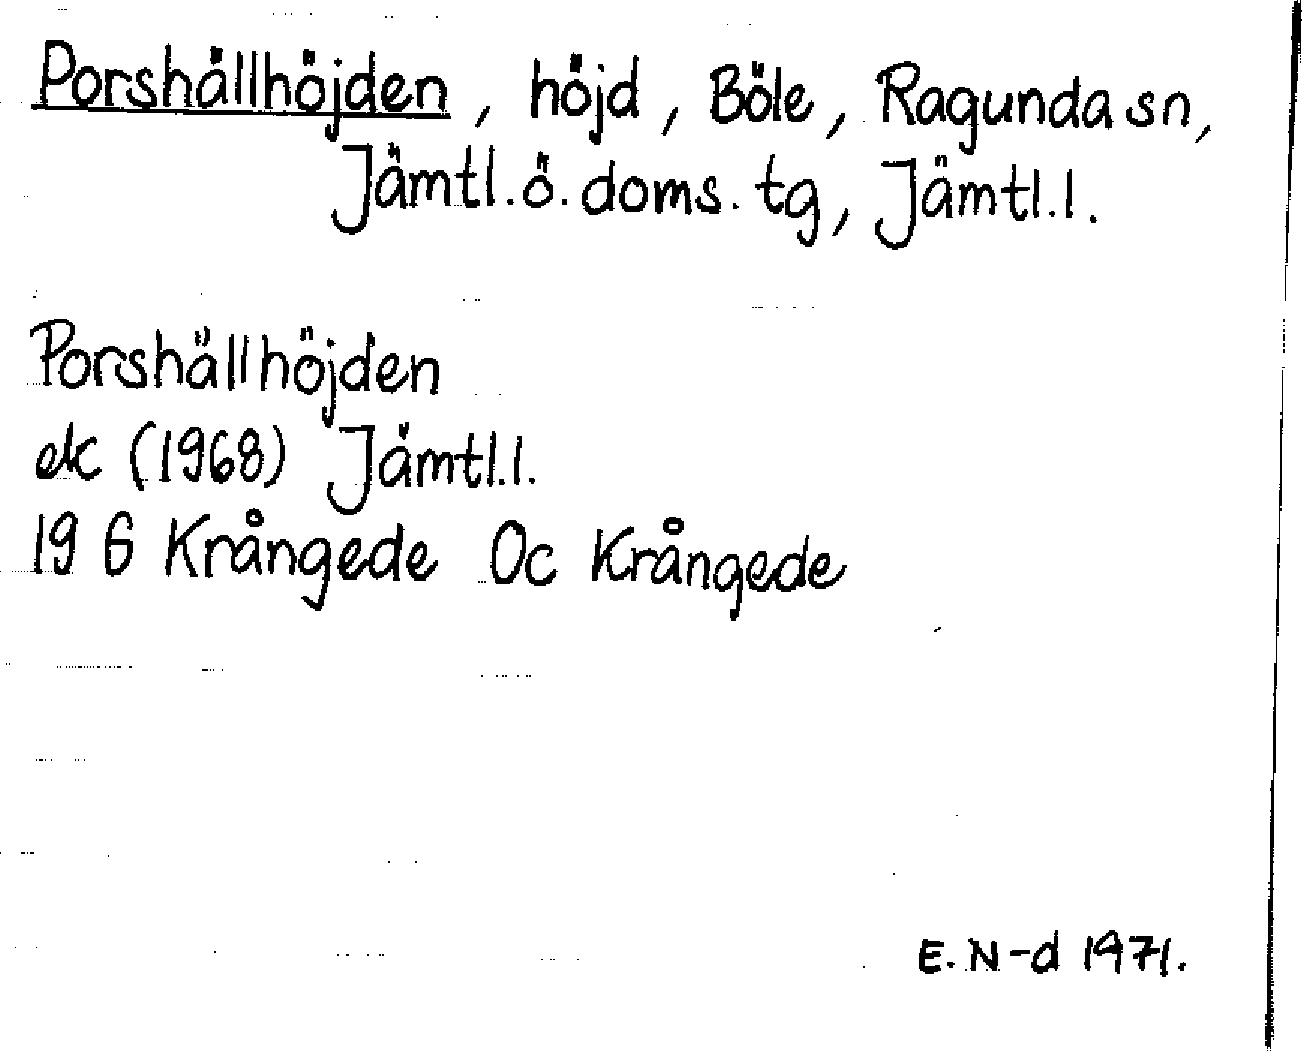 Porshällhöjden, höjd, Böle, Ragunda sn,
Jämtl. ö. doms. tg, Jämtl. l.
Porshällhöjden
ek (1968) Jämtl. l.
19 G Krångede Oc Krångede
E. N-d 1971.